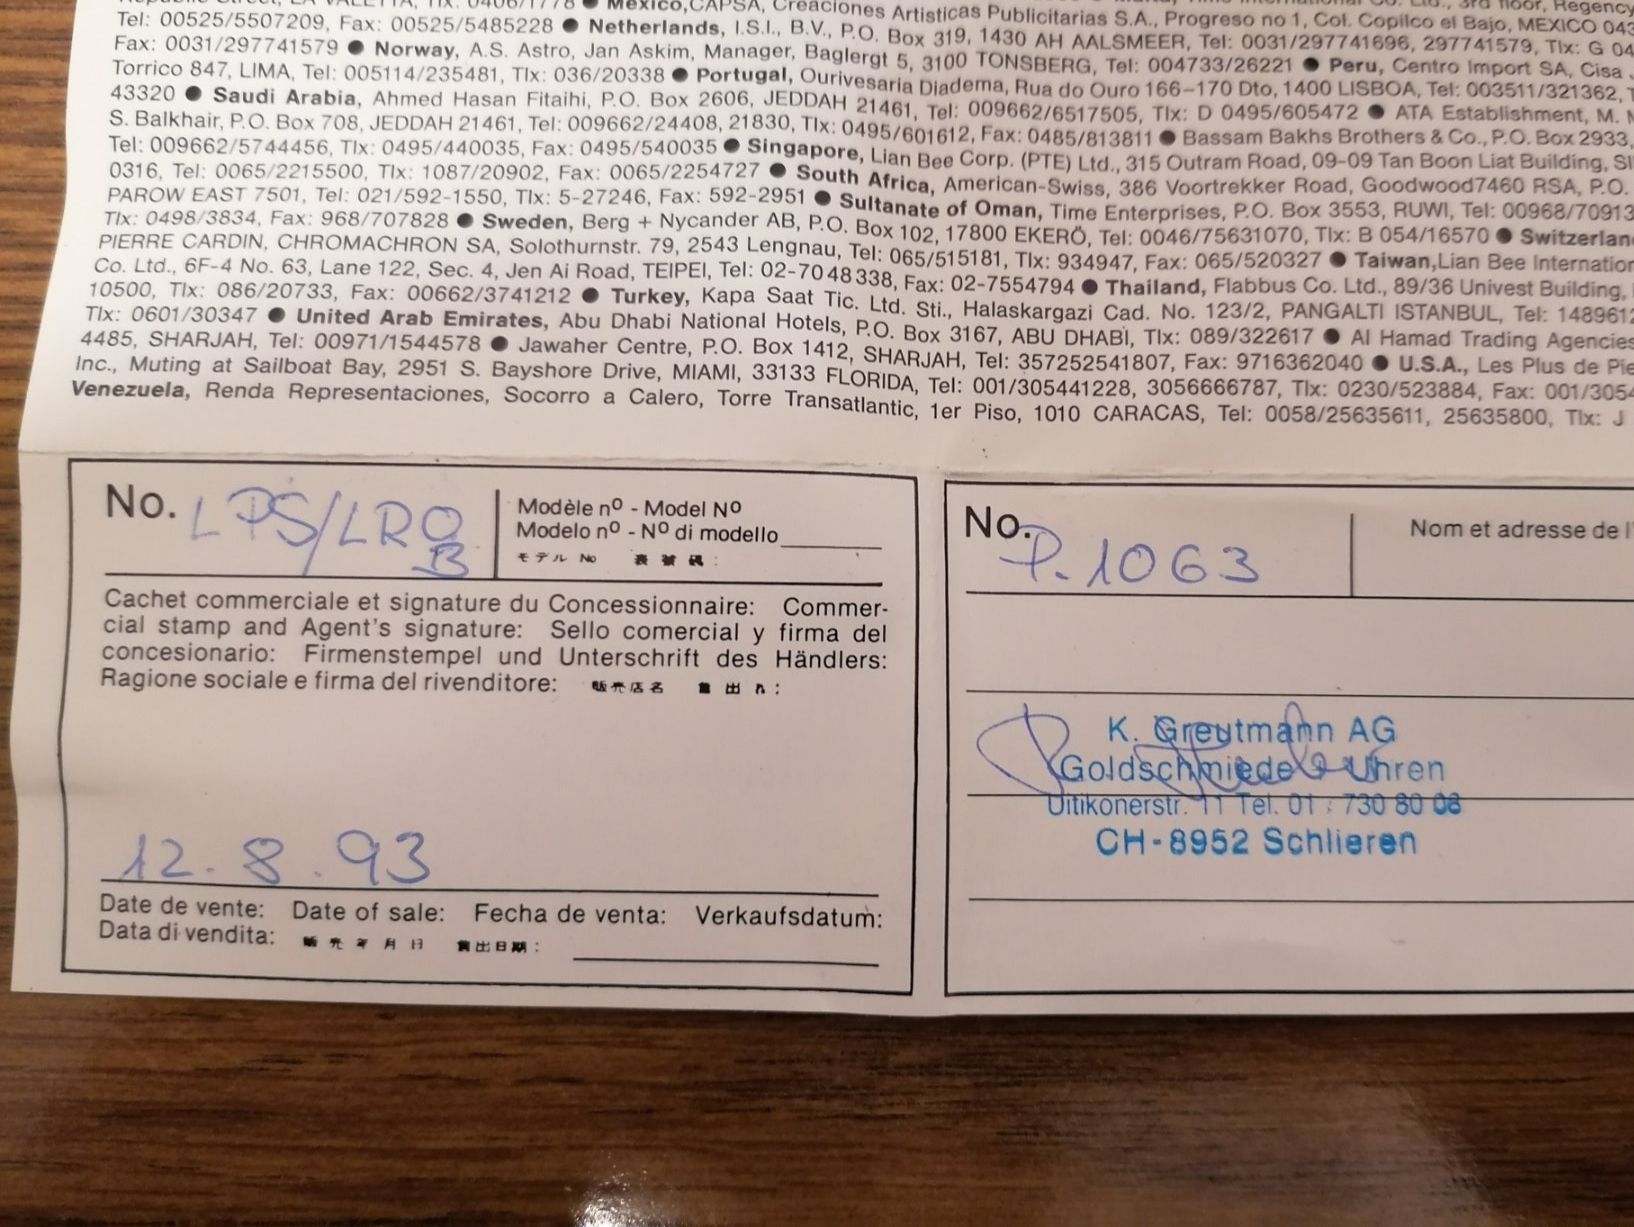 Tel: 00525/5507209, Fax: 00525/5485228 ● Mexico, CAPSA, Creaciones Artisticas Publicitarias S.A., Progreso no 1, Col. Copilco el Bajo, MEXICO
● Netherlands, I.S.I., B.V., P.O. Box 319, 1430 AH AALSMEER, Tel: 0031/297741696, 297741579, Tlx: G
Fax: 0031/297741579 ● Norway, A.S. Astro, Jan Askim, Manager, Baglergt 5, 3100 TONSBERG, Tel: 004733/26221 ● Peru, Centro Import SA, Cisa
Torrico 847, LIMA, Tel: 005114/235481, Tlx: 036/20338 ● Portugal, Ourivesaria Diadema, Rua do Ouro 166-170 Dto, 1400 LISBOA, Tel: 003511/321362,
43320 ● Saudi Arabia, Ahmed Hasan Fitaihi, P.O. Box 2606, JEDDAH 21461, Tel: 009662/6517505, Tlx: D 0495/605472 ● ATA Establishment, M.
S. Balkhair, P.O. Box 708, JEDDAH 21461, Tel: 009662/24408, 21830, Tlx: 0495/601612, Fax: 0485/813811 ● Bassam Bakhs Brothers & Co., P.O. Box 2933,
Tel: 009662/5744456, Tlx: 0495/440035, Fax: 0495/540035 ● Singapore, Lian Bee Corp. (PTE) Ltd., 315 Outram Road, 09-09 Tan Boon Liat Building,
0316, Tel: 0065/2215500, Tlx: 1087/20902, Fax: 0065/2254727 ● South Africa, American-Swiss, 386 Voortrekker Road, Goodwood7460 RSA, P.O.
PAROW EAST 7501, Tel: 021/592-1550, Tlx: 5-27246, Fax: 592-2951 ● Sultanate of Oman, Time Enterprises, P.O. Box 3553, RUWI, Tel: 00968/70913
Tlx: 0498/3834, Fax: 968/707828 ● Sweden, Berg + Nycander AB, P.O. Box 102, 17800 EKERÖ, Tel: 0046/75631070, Tlx: B 054/16570 ● Switzerlan
PIERRE CARDIN, CHROMACHRON SA, Solothurnstr. 79, 2543 Lengnau, Tel: 065/515181, Tlx: 934947, Fax: 065/520327 ● Taiwan,Lian Bee Internation
Co. Ltd., 6F-4 No. 63, Lane 122, Sec. 4, Jen Ai Road, TEIPEI, Tel: 02-7048338, Fax: 02-7554794 ● Thailand, Flabbus Co. Ltd., 89/36 Univest Building,
10500, Tlx: 086/20733, Fax: 00662/3741212 ● Turkey, Kapa Saat Tic. Ltd. Sti., Halaskargazi Cad. No. 123/2, PANGALTI ISTANBUL, Tel: 1489612
Tlx: 0601/30347 ● United Arab Emirates, Abu Dhabi National Hotels, P.O. Box 3167, ABU DHABI, Tlx: 089/322617 ● Al Hamad Trading Agencies
4485, SHARJAH, Tel: 00971/1544578 ● Jawaher Centre, P.O. Box 1412, SHARJAH, Tel: 357252541807, Fax: 9716362040 ● U.S.A., Les Plus de Pie
Inc., Muting at Sailboat Bay, 2951 S. Bayshore Drive, MIAMI, 33133 FLORIDA, Tel: 001/305441228, 3056666787, Tlx: 0230/523884, Fax: 001/3054
Venezuela, Renda Representaciones, Socorro a Calero, Torre Transatlantic, 1er Piso, 1010 CARACAS, Tel: 0058/25635611, 25635800, Tlx: J
No. LPS/LRQ
B
Modèle nº - Model Nº
Modelo nº - Nº di modello
モデル No 表號碼:
Cachet commerciale et signature du Concessionnaire: Commer-
cial stamp and Agent's signature: Sello comercial y firma del
concesionario: Firmenstempel und Unterschrift des Händlers:
Ragione sociale e firma del rivenditore: 販売店名
12.8.93
Date de vente: Date of sale: Fecha de venta: Verkaufsdatum:
Data di vendita: 販売年月日 售出日期:
No. P.1063
Nom et adresse de l'
K. Greutmann AG
Goldschmiede Uhren
Uitikonerstr. 11 Tel. 01 730 80 08
CH-8952 Schlieren